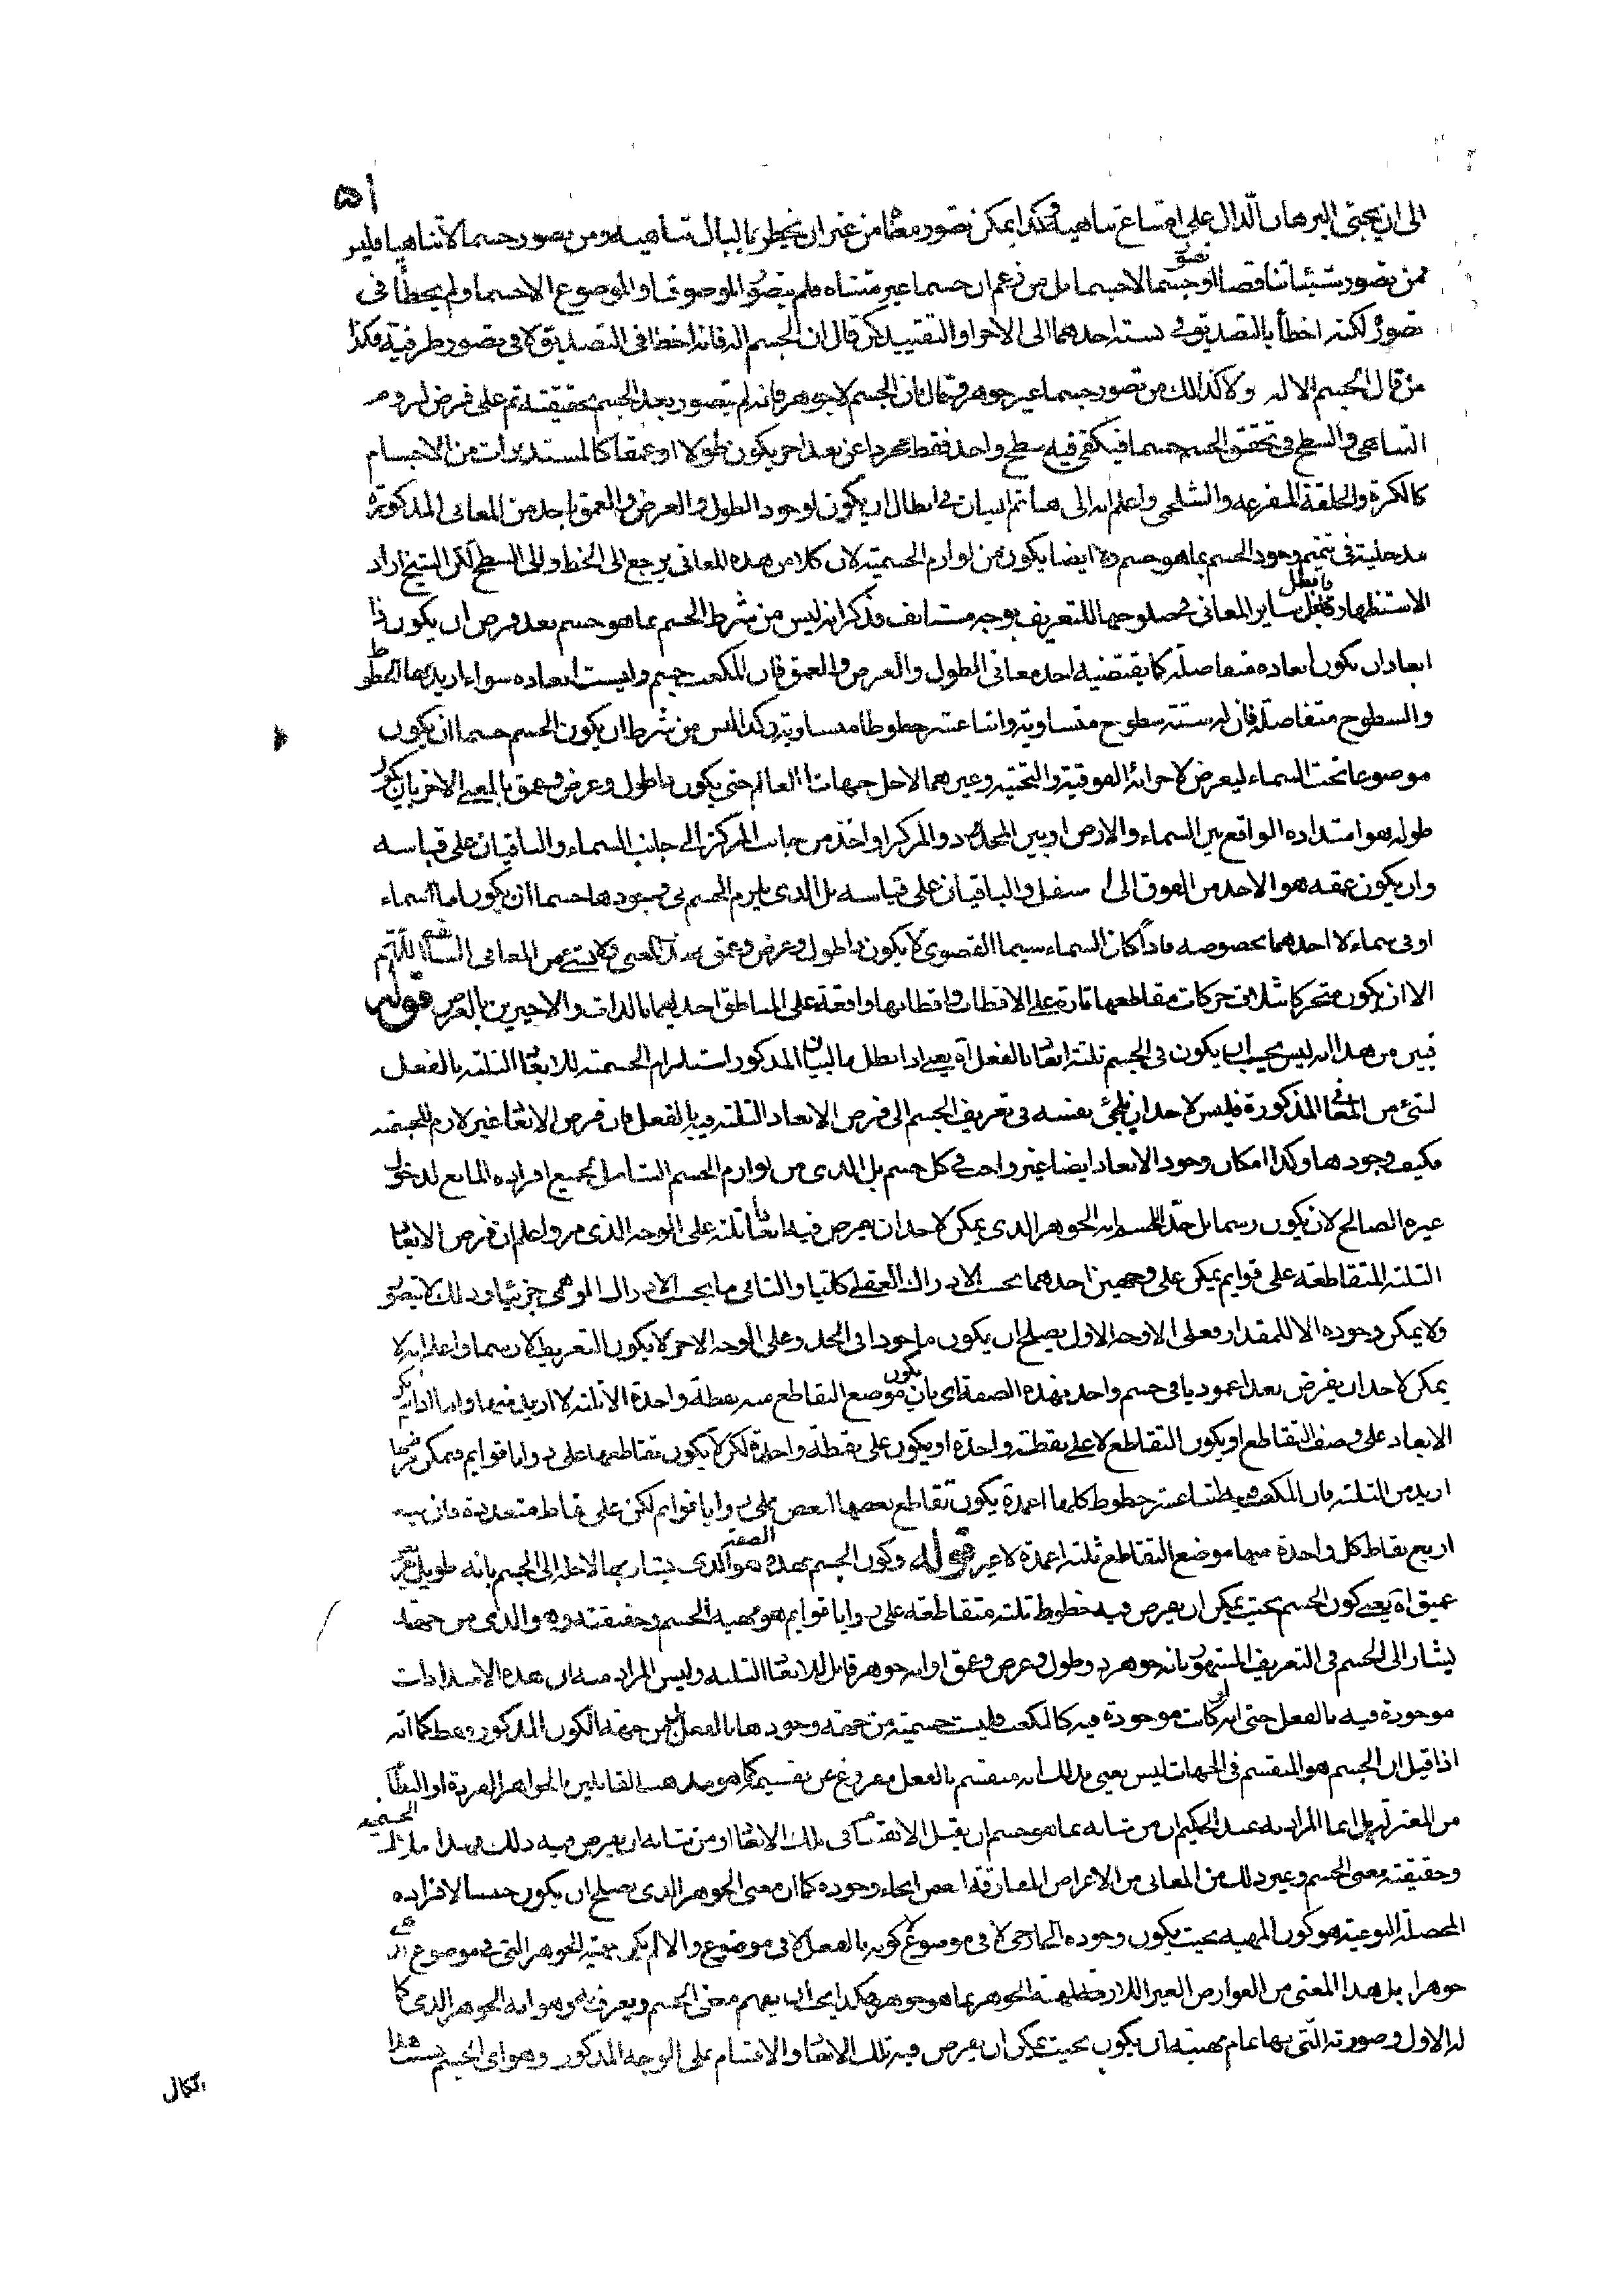 ۵۱
الى ان يجئ البرهان الدال على امتناع تناهيه فكذا يمكن تصوره من غير ان يخطر بالبال تناهيه ومن تصور جسما لا متناهيا فليس
كمن تصور شيئا تناقضا او جسما لا جسما بل من زعم ان جسما غير متناه فلم يتصور الموصوف او الموضوع الا جسما ولم يخطأ فى
تصوره لكنه اخطأ بالتصديق فى نسبة احدهما الى الاخر او التقييد كمن قال ان الجسم اله فانه اخطأ فى التصديق لا فى تصور طرفيه فكذا
من قال الجسم لا اله ولا كذلك من تصور جسما غير جوهر وقال ان الجسم لا جوهر فانه لم يتصور بعد الجسم بحقيقته ثم على فرض لزوم
التناهى والسطح فى تحقق الجسم جسما فيكفى فيه سطح واحد فقط مجردا عن بعد اخر يكون طولا او عمقا كالمستديرات من الاجسام
كالكرة والحلقة المفرغه والشلجمى واعلم انه الى هنا تم البيان فى ابطال ان يكون لوجود الطول والعرض والعمق باحد من المعانى المذكورة
مدخلية فى تتميم وجود الجسم بما هو جسم او ايضا يكون من لوازم الجسمية لان كلا من هذه المعانى يرجع الى الخط والى السطح لكن الشيخ اراد
الاستظهار وابطل ساير المعانى فى صلوحها للتعريف بوجه مستانف فذكر انه ليس من شرط الجسم بما هو جسم بعد فرض ان يكون ذا
ابعاد ان يكون ابعاده متفاضلة كما يقتضيه احد معانى الطول والعرض والعمق فان المكعب جسم وليست ابعاده سواء اريد بها الخطوط
والسطوح متفاضلة فان له ستة سطوح متساوية واثنا عشر خطوطا متساوية وكذا ليس من شرط ان يكون الجسم جسما ان يكون
موضوعا تحت السماء ليعرض لاجزائه الفوقية والتحتية وغيرهما لاجل جهات العالم حتى يكون ذا طول وعرض وعمق بالمعنى الاخر بان يكون
طوله هو امتداده الواقع بين السماء والارض او بين المحدد والمركز او اخذ من جانب المركز الى جانب السماء والباقيان على قياسه
وان يكون عمقه هو الاخذ من الفوق الى اسفل والباقيان على قياسه بل الذى يلزم الجسم فى وجودها جسما ان يكون اما السماء
او فى سماء لا احدهما بخصوصه فاذا كان السماء سيما القصوى لا يكون ذا طول وعرض وعمق بهذا المعنى ولا بشئ من المعانى الستة اللهم
الا ان يكون متحركا ثلث حركات مقاطعها تارة على الاقطاب واقطابها واقعة على المناطق احديهما بالذات والاخيرين بالعرض قوله
فبين من هذا انه ليس يجب ان يكون فى الجسم ثلثة ابعاد بالفعل آه يعنى اذا بطل بالبيان المذكور استلزام الجسمية للابعاد الثلثة بالفعل
لشئ من المعانى المذكورة فليس لاحد ان يلجئ نفسه فى تعريف الجسم الى فرض الابعاد الثلثة فيه بالفعل فان فرض الابعاد غير لازم للجسمية
فكيف وجودها وكذا امكان وجود الابعاد ايضا غير واجب فى كل جسم بل الذى من لوازم الجسم الشامل لجميع افراده المانع لدخول
غيره الصالح لان يكون رسما بل حدا للجسم انه الجوهر الذى يمكن لاحد ان يعرض فيه ابعادا ثلثة على الوجه الذى مر واعلم ان فرض الابعاد
الثلثة المتقاطعة على قوايم يمكن على وجهين احدهما بحسب الادراك العقلى كليا والثانى ما بحسب الادراك الوهمى جزئيا وذلك لا يتصور
ولا يمكن وجوده الا للمقدار فعلى الوجه الاول يصلح ان يكون ماخوذا فى الحد وعلى الوجه الاخر لا يكون التعريف الا رسما واعلم انه لا
يمكن لاحد ان يفرض بعدا عموديا فى جسم واحد بهذه الصفة اى بان يكون موضع التقاطع منه نقطة واحدة الا ثلثة لا ازيد منها واما اذا لم يكن
الابعاد على وصف التقاطع او يكون التقاطع لا على نقطة واحدة او يكون على نقطة واحدة لكن لا يكون تقاطعها على زوايا قوايم فيمكن فرض
ازيد من الثلثة فان المكعب يحيط به اثنا عشر خطوط كلها اعمدة يكون تقاطع بعضها البعض على زوايا قوايم لكن على نقاط متعددة فان فيه
اربع نقاط كل واحدة منها موضع التقاطع ثلثة اعمدة لا غير قوله وكون الجسم بهذه الصفة هو الذى يشار بها لاجله الى الجسم بانه طويل عريض
عميق آه يعنى كون الجسم بحيث يمكن ان يعرض فيه خطوط ثلثة متقاطعة على زوايا قوايم هو مهية الجسم وحقيقته وهو الذى من جهته
يشار الى الجسم فى التعريف المشهور بانه جوهر ذو طول وعرض وعمق او انه جوهر قابل للابعاد الثلثة وليس المراد منه ان هذه الامتدادات
موجودة فيه بالفعل حتى انه لو كانت موجودة فيه كالمكعب فليست جسميته من جهة وجودها بالفعل بل من جهة الكون المذكور فقط كما انه
اذا قيل ان الجسم هو المنقسم فى الجهات ليس يعنى بذلك انه منقسم بالفعل مفروغ عن تقسيمه كما هو مذهب القائلين بالجواهر الفردة او النظام
من المعتزلة بل انما المراد به عند الحكيم ان من شانه بما هو جسم ان يقبل الانقسام فى تلك الابعاد او من شانه ان يعرض فيه ذلك فهذا ملاك الجسمية
وحقيقته معنى الجسم وغير ذلك من المعانى من الاعراض المفارقة لبعض انحاء وجوده كما ان معنى الجوهر الذى يصلح ان يكون جنسا لافراده
المحصلة النوعية هو كون المهية بحيث يكون وجوده الخارجى لا فى موضوع لا كونه بالفعل لا فى موضوع والا لم يكن مهية الجوهر التى فى موضوع
جوهرا بل هذا المعنى من العوارض الغير اللازمة لمهية الجوهر بما هو جوهر هكذا يجب ان يفهم معنى الجسم ويعرف به وهو انه الجوهر الذى كما
له الاول وصورته التى بها تمام مهيته ان يكون بحيث يمكن ان يعرض فيه تلك الابعاد والاقسام على الوجه المذكور وهو اى الجسم